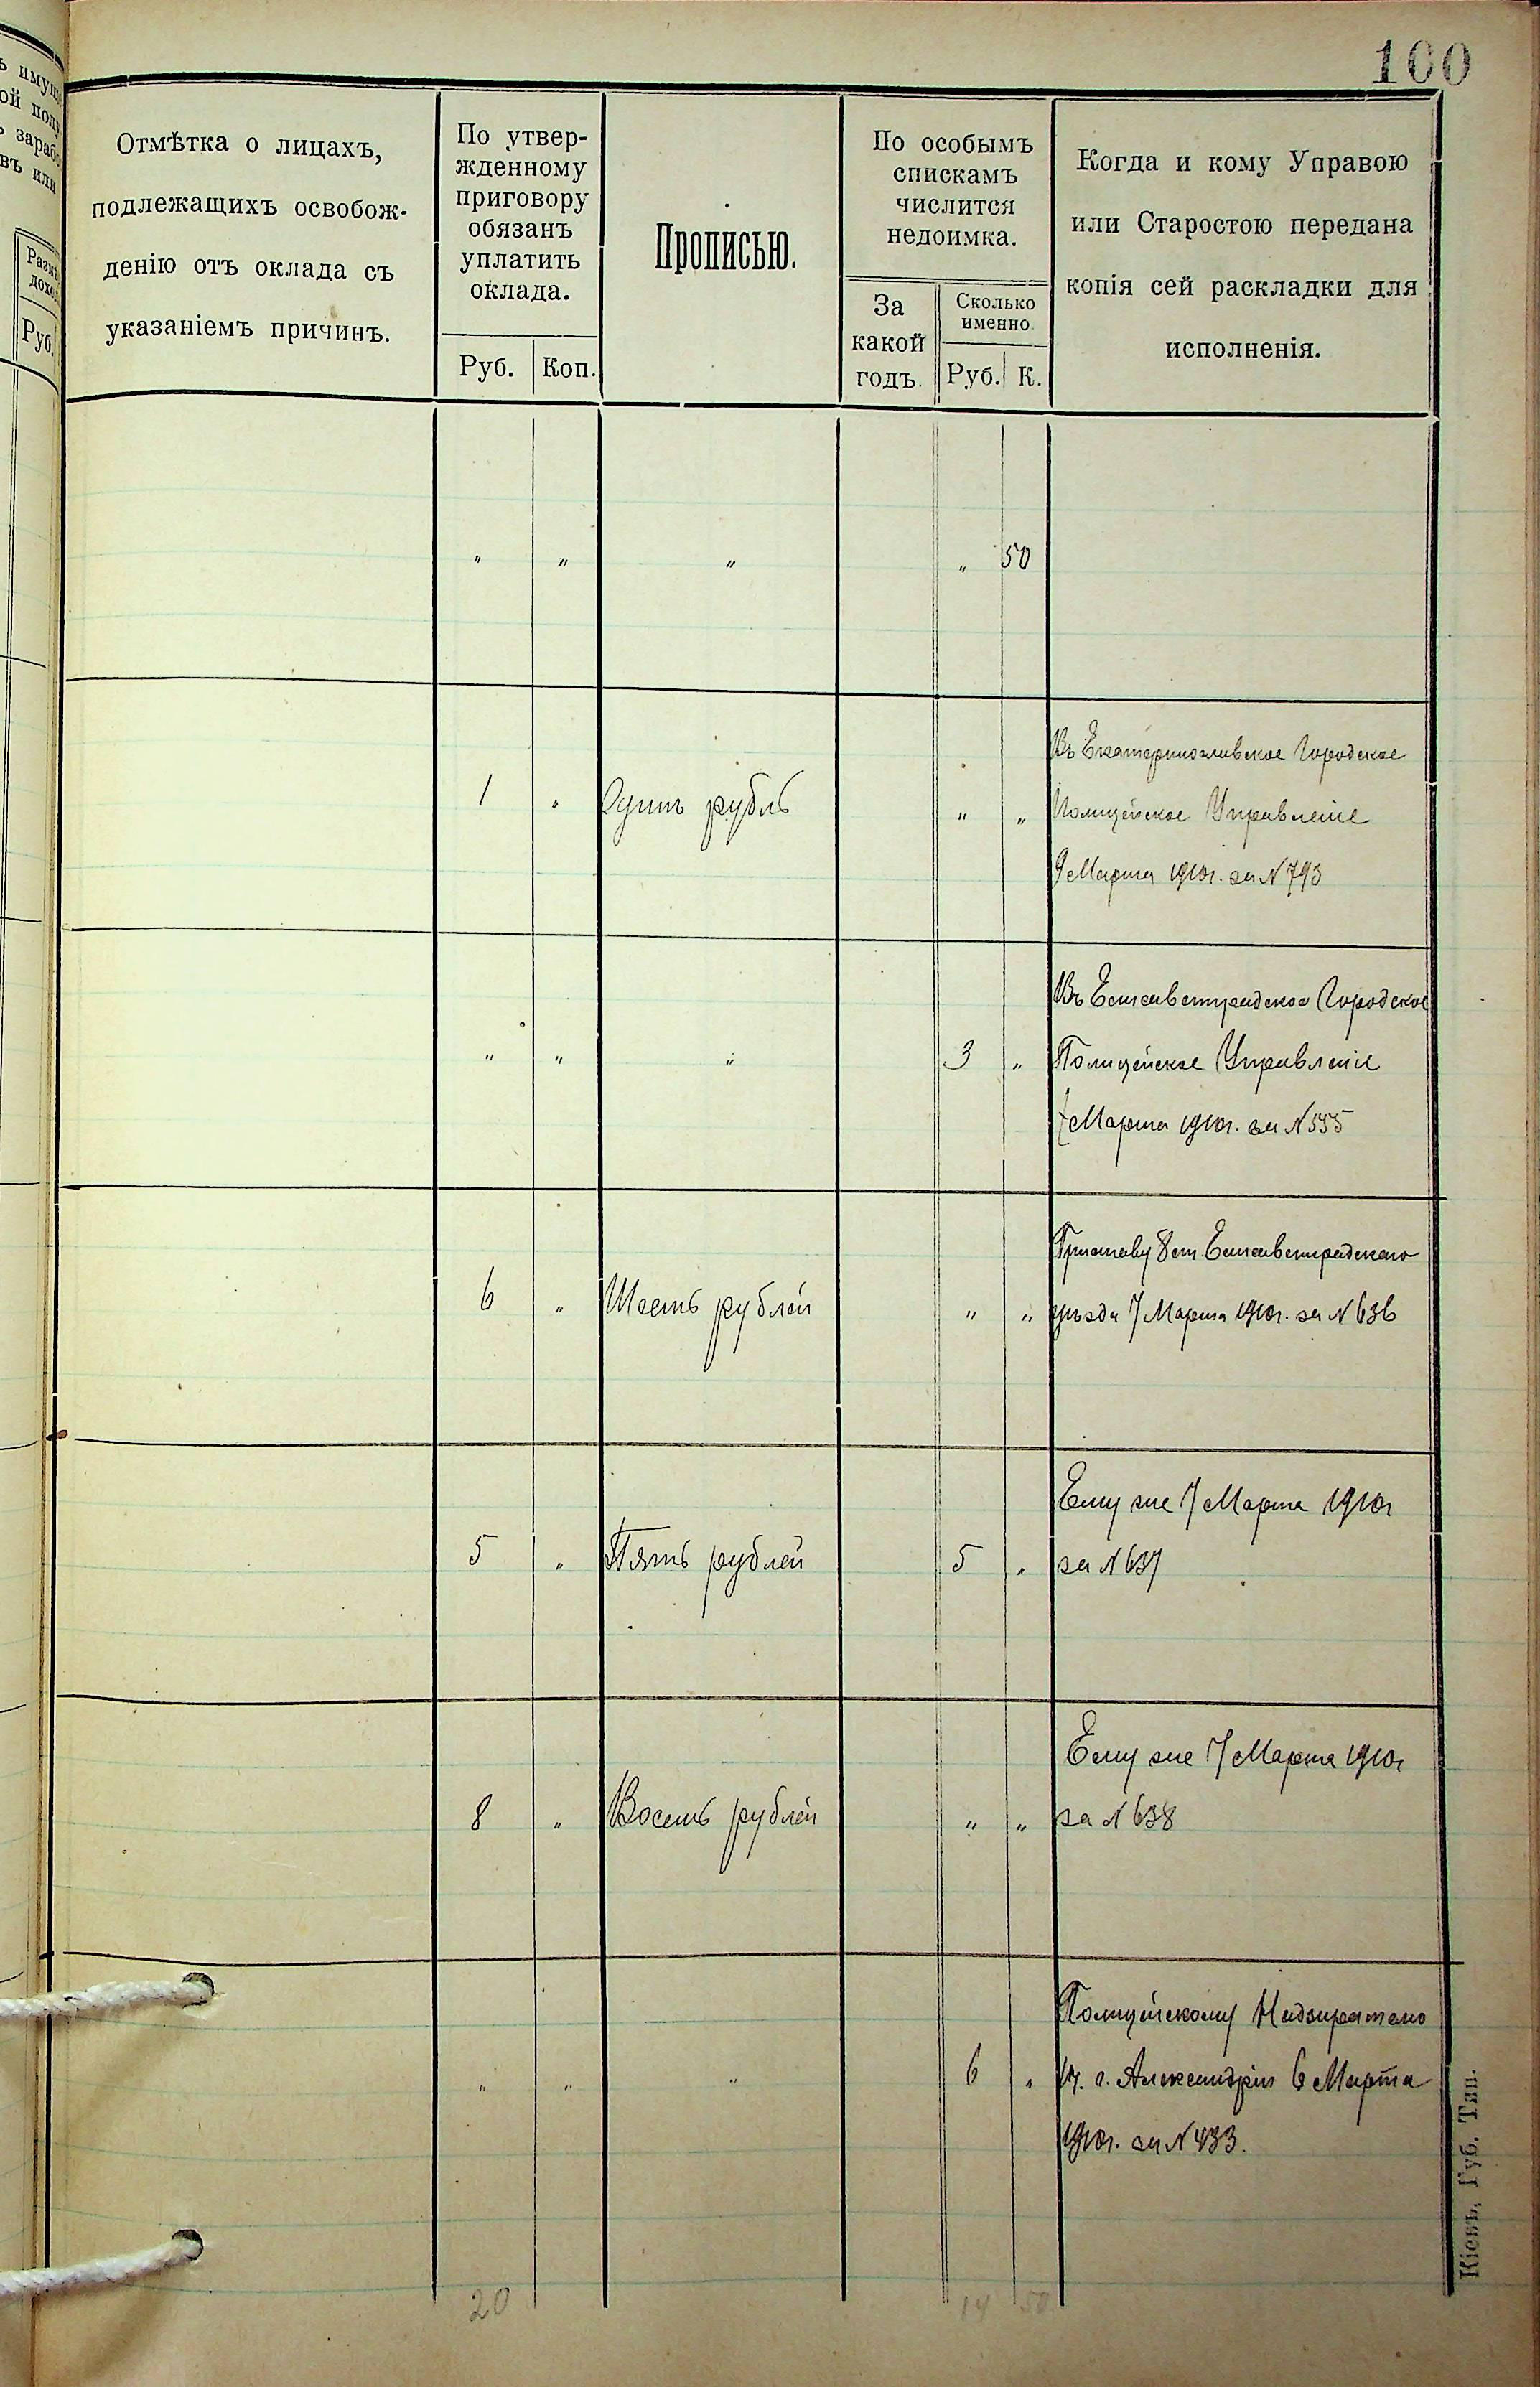 100
Отмѣтка о лицахъ,
подлежащихъ освобож-
денію отъ оклада съ
указаніемъ причинъ.
По утвер-
жденному
приговору
обязанъ
уплатить
оклада.
Руб. Коп.
Прописью.
По особымъ
спискамъ
числится
недоимка.
За
какой
годъ.
Сколько
именно
Руб. К.
Когда и кому Управою
или Старостою передана
копія сей раскладки для
исполненія.
" " " " 50
Въ Екатеринославское Городское
1 " Одинъ рубль " " Полицейское Управленіе
9 Марта 1910г. за N 793
Въ Елисаветградское Городское
" " " 3 " Полицейское Управленіе
Марта 1910г. за N 555
Приставу 8 ст. Елисаветградскаго
6 " Шесть рублей " " уѣзда 7 Марта 1910г. за N 636
Ему же 7 Марта 1910г
5 " Пять рублей 5 " за N 637
Ему же 7 Марта 1910г
8 " Восемь рублей " " за N 638
Полицейскому Надзирателю
" " " 6 " г. Александріи 6 Марта
1910г. за N 433.
20 14 50
Кіевъ, Губ. Тип.
ъ имущ
ой полу
ь зарабо
въ или
Размѣ
дохо
Руб.